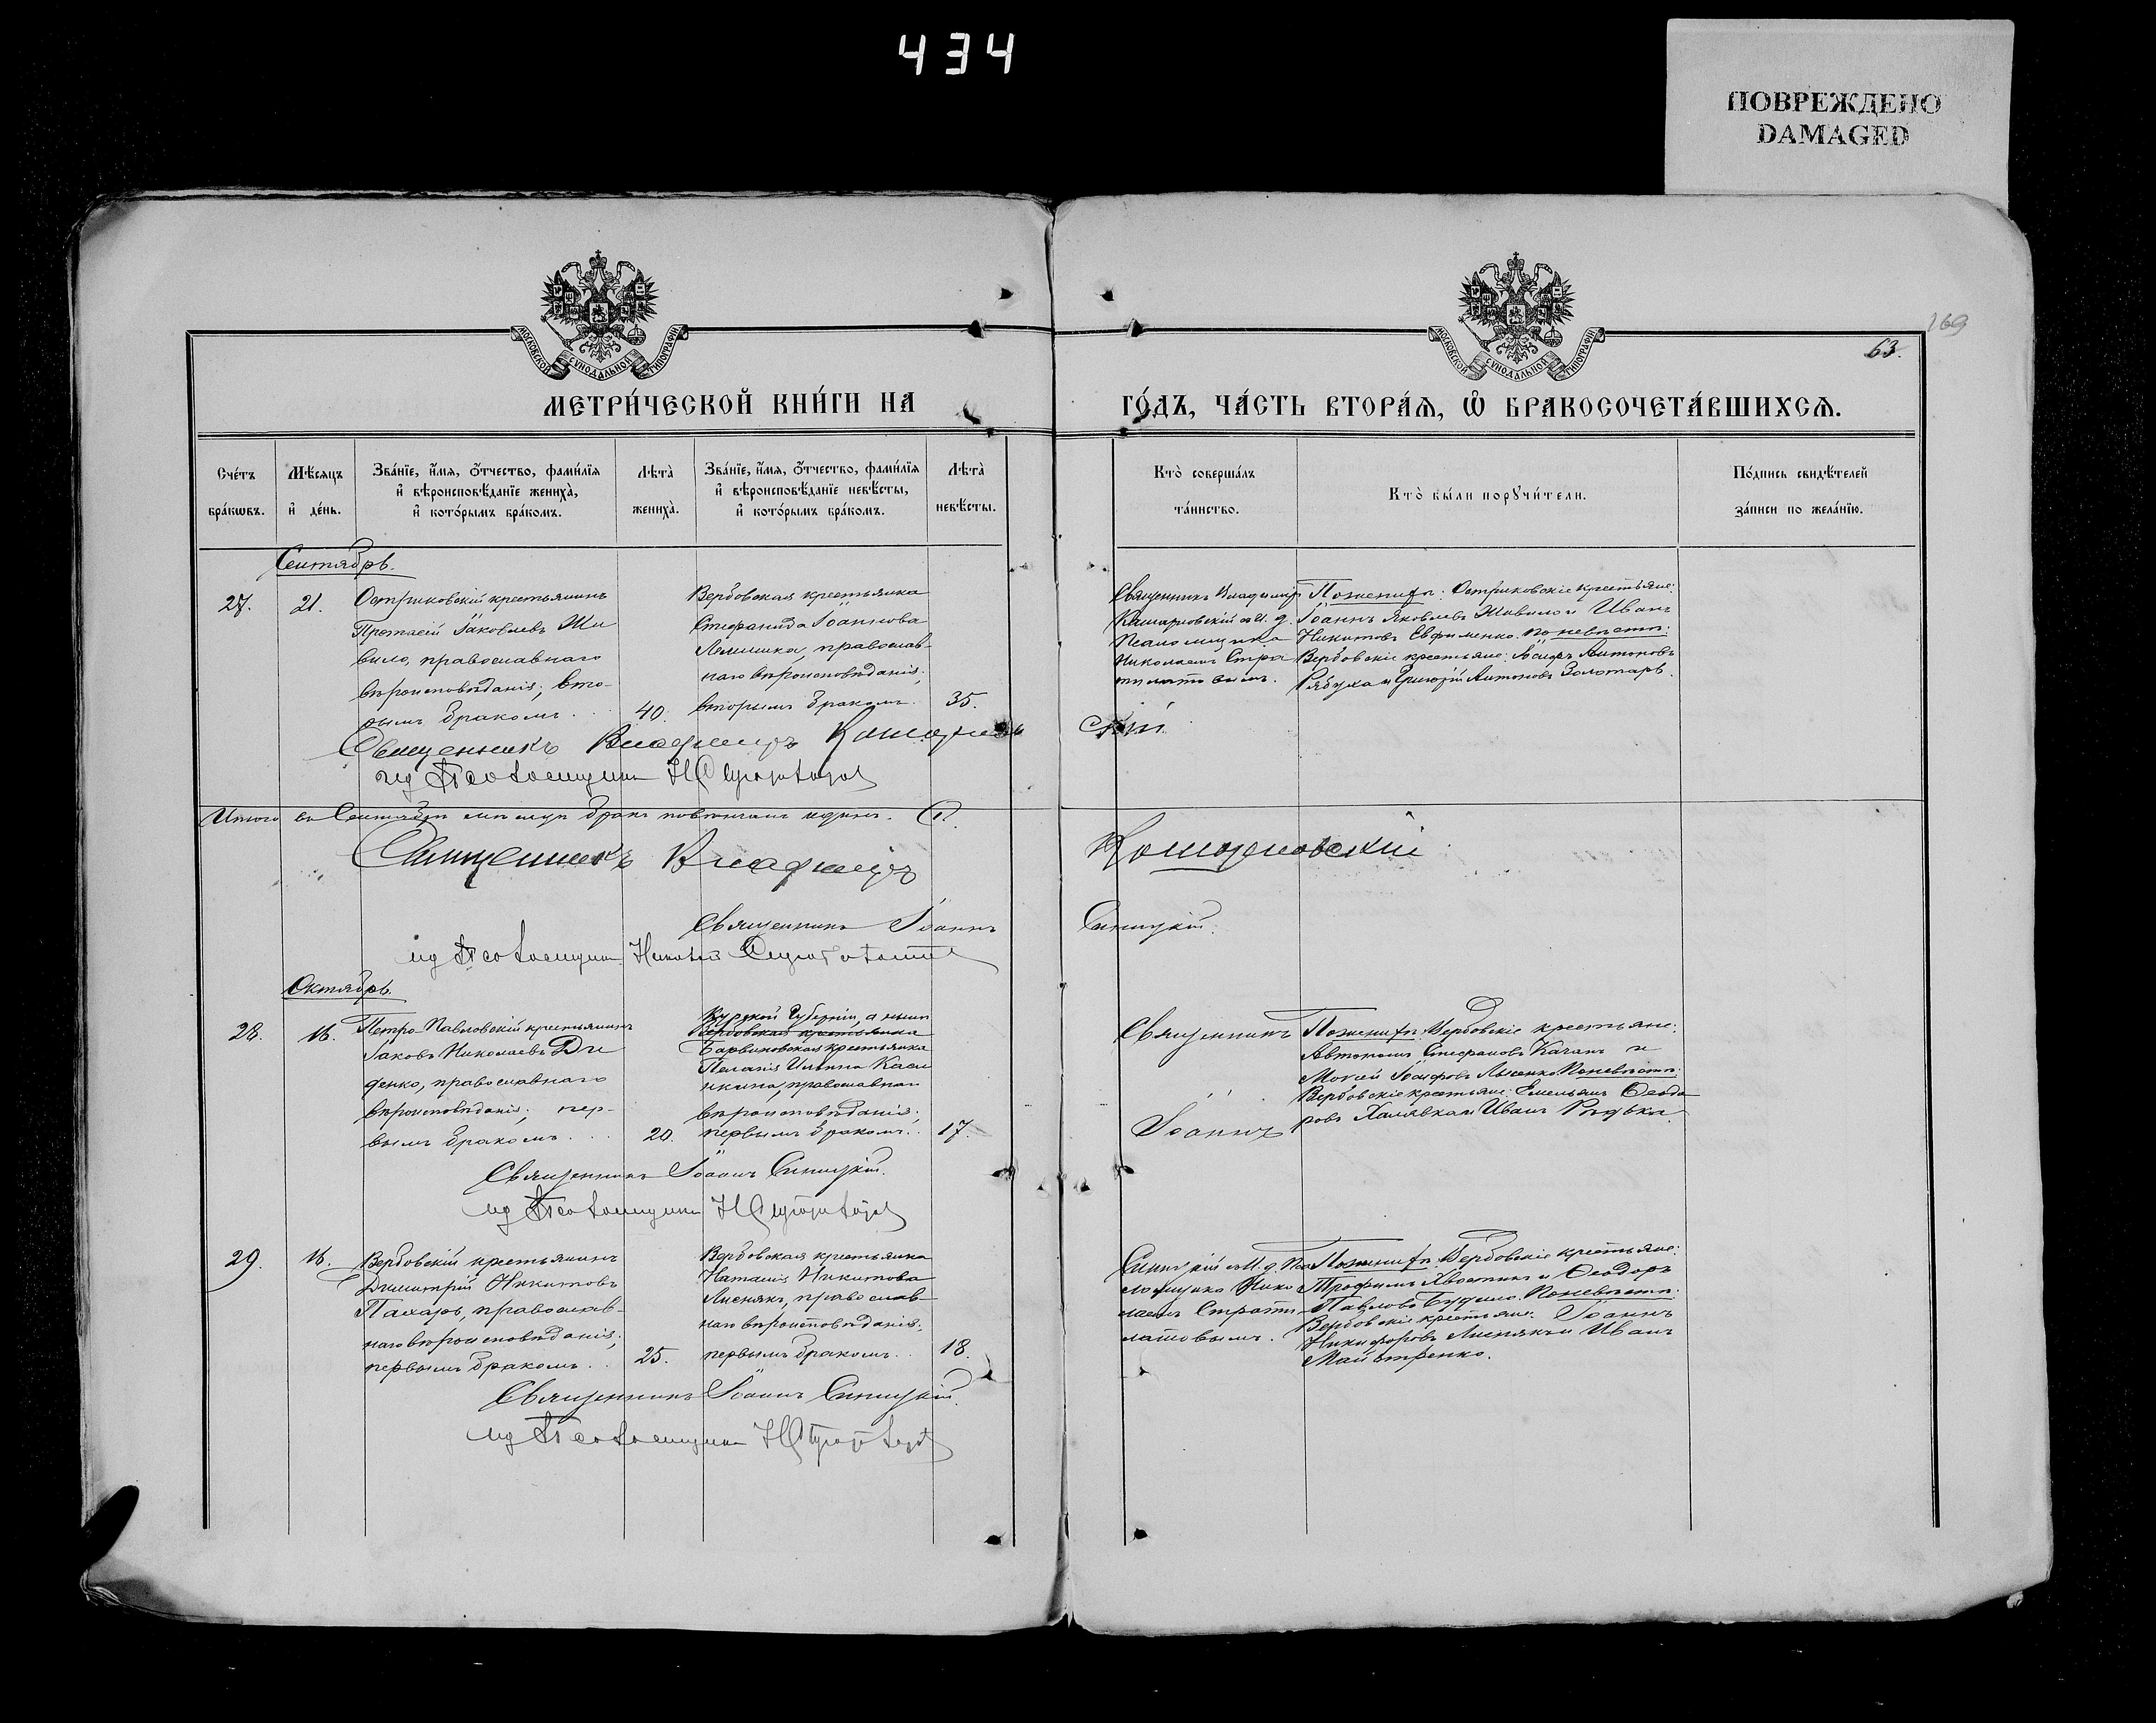 434
ПОВРЕЖДЕНО
DAMAGED
МОСКОВСКОЙ СѴНОДАЛЬНОЙ ТИПОГРАФІИ
МОСКОВСКОЙ СѴНОДАЛЬНОЙ ТИПОГРАФІИ
169
63.
МЕТРИ́ЧЕСКОЙ КНИ́ГИ НА
ГО́ДЪ, ЧА́СТЬ ВТОРА́Я, Ѡ БРАКОСОЧЕТА́ВШИХСЯ.
Сче́тъ
бра́кѡвъ.
Мѣ́сяцъ
и҆ де́нь.
Зва́нїе, и҆́мя, ѻ҆́тчество, фами́лїя
и҆ вѣроисповѣ́данїе жениха̀,
и҆ кото́рымъ бра́комъ.
Лѣ́та̀
жениха̀.
Зва́нїе, и҆́мя, ѻ҆́тчество, фами́лїя
и҆ вѣроисповѣ́данїе невѣ́сты,
и҆ кото́рымъ бра́комъ.
Лѣ́та̀
невѣ́сты.
Кто̀ соверша́лъ
та́инство.
Кто̀ бы́ли порꙋчи́тели.
По́дпись свидѣ́телей
за́писи по жела́нїю.
Сентябрь.
27.
21.
Остриковскій крестьянинъ
Протасій Іаковлевъ Ши
вило, православнаго
вѣроисповѣданія, вто-
рымъ бракомъ.
40.
Вербовская крестьянка
Стефанида Іоаннова
православ-
наго вѣроисповѣданія;
вторымъ бракомъ.
35.
Священникъ Владиміръ
и. д.
Псаломщика
Николаемъ Стра
тилатовымъ.
По женихѣ: Остриковскіе крестьяне:
Іоаннъ Яковлевъ Шивило и Иванъ
Никитовъ Евфименко. по невѣстѣ:
Вербовскіе крестьяне: Іосифъ Антоновъ
Рябуха и Григорій Антоновъ Золотарь.
Священникъ Владиміръ
скій
ид Псаломщика
Итого въ Сентябрѣ мѣсяцѣ бракъ повѣнчанъ одинъ. (1).
Священникъ Владиміръ
Священникъ Іоаннъ
Синицкій.
ид Псаломщика Николай Стратилатовъ
Октябрь.
28.
16.
Петро-Павловскій крестьянинъ
Іаковъ Николаевъ Ди
денко, православнаго
вѣроисповѣданія; пер-
вымъ бракомъ.
20.
Курской Губерніи, а нынѣ
Вербовская крестьянка
Барвинковская крестьянка
Пелагія Ильина Каси
нкина, православнаго
вѣроисповѣданія;
первымъ бракомъ.
17.
Священникъ
Іоаннъ
По женихѣ: Вербовскіе крестьяне:
Автономъ Стефановъ Качанъ и
Моисей Іосифовъ Лысенко. По невѣстѣ:
Вербовскіе крестьяне: Емельянъ Ѳеодо
ровъ Халявка и Иванъ Рудька.
Священникъ Іоаннъ Синицкій.
ид Псаломщика
29.
16.
Вербовскій крестьянинъ
Димитрій Никитовъ
Пахарь, православ-
наго вѣроисповѣданія;
первымъ бракомъ.
25.
Вербовская крестьянка
Наталія Никитова
Лиснякъ, православ-
наго вѣроисповѣданія;
первымъ бракомъ.
18.
Синицкій и и. д. Пса
ломщика Нико
лаемъ Страти-
латовымъ.
По женихѣ: Вербовскіе крестьяне:
Трофимъ Хвостикъ и Ѳеодоръ
Павловъ Будило. По невѣстѣ:
Вербовскіе крестьяне: Іоаннъ
Никифоровъ Лиснякъ и Иванъ
Майстренко.
Священникъ Іоаннъ Синицкій.
ид Псаломщика